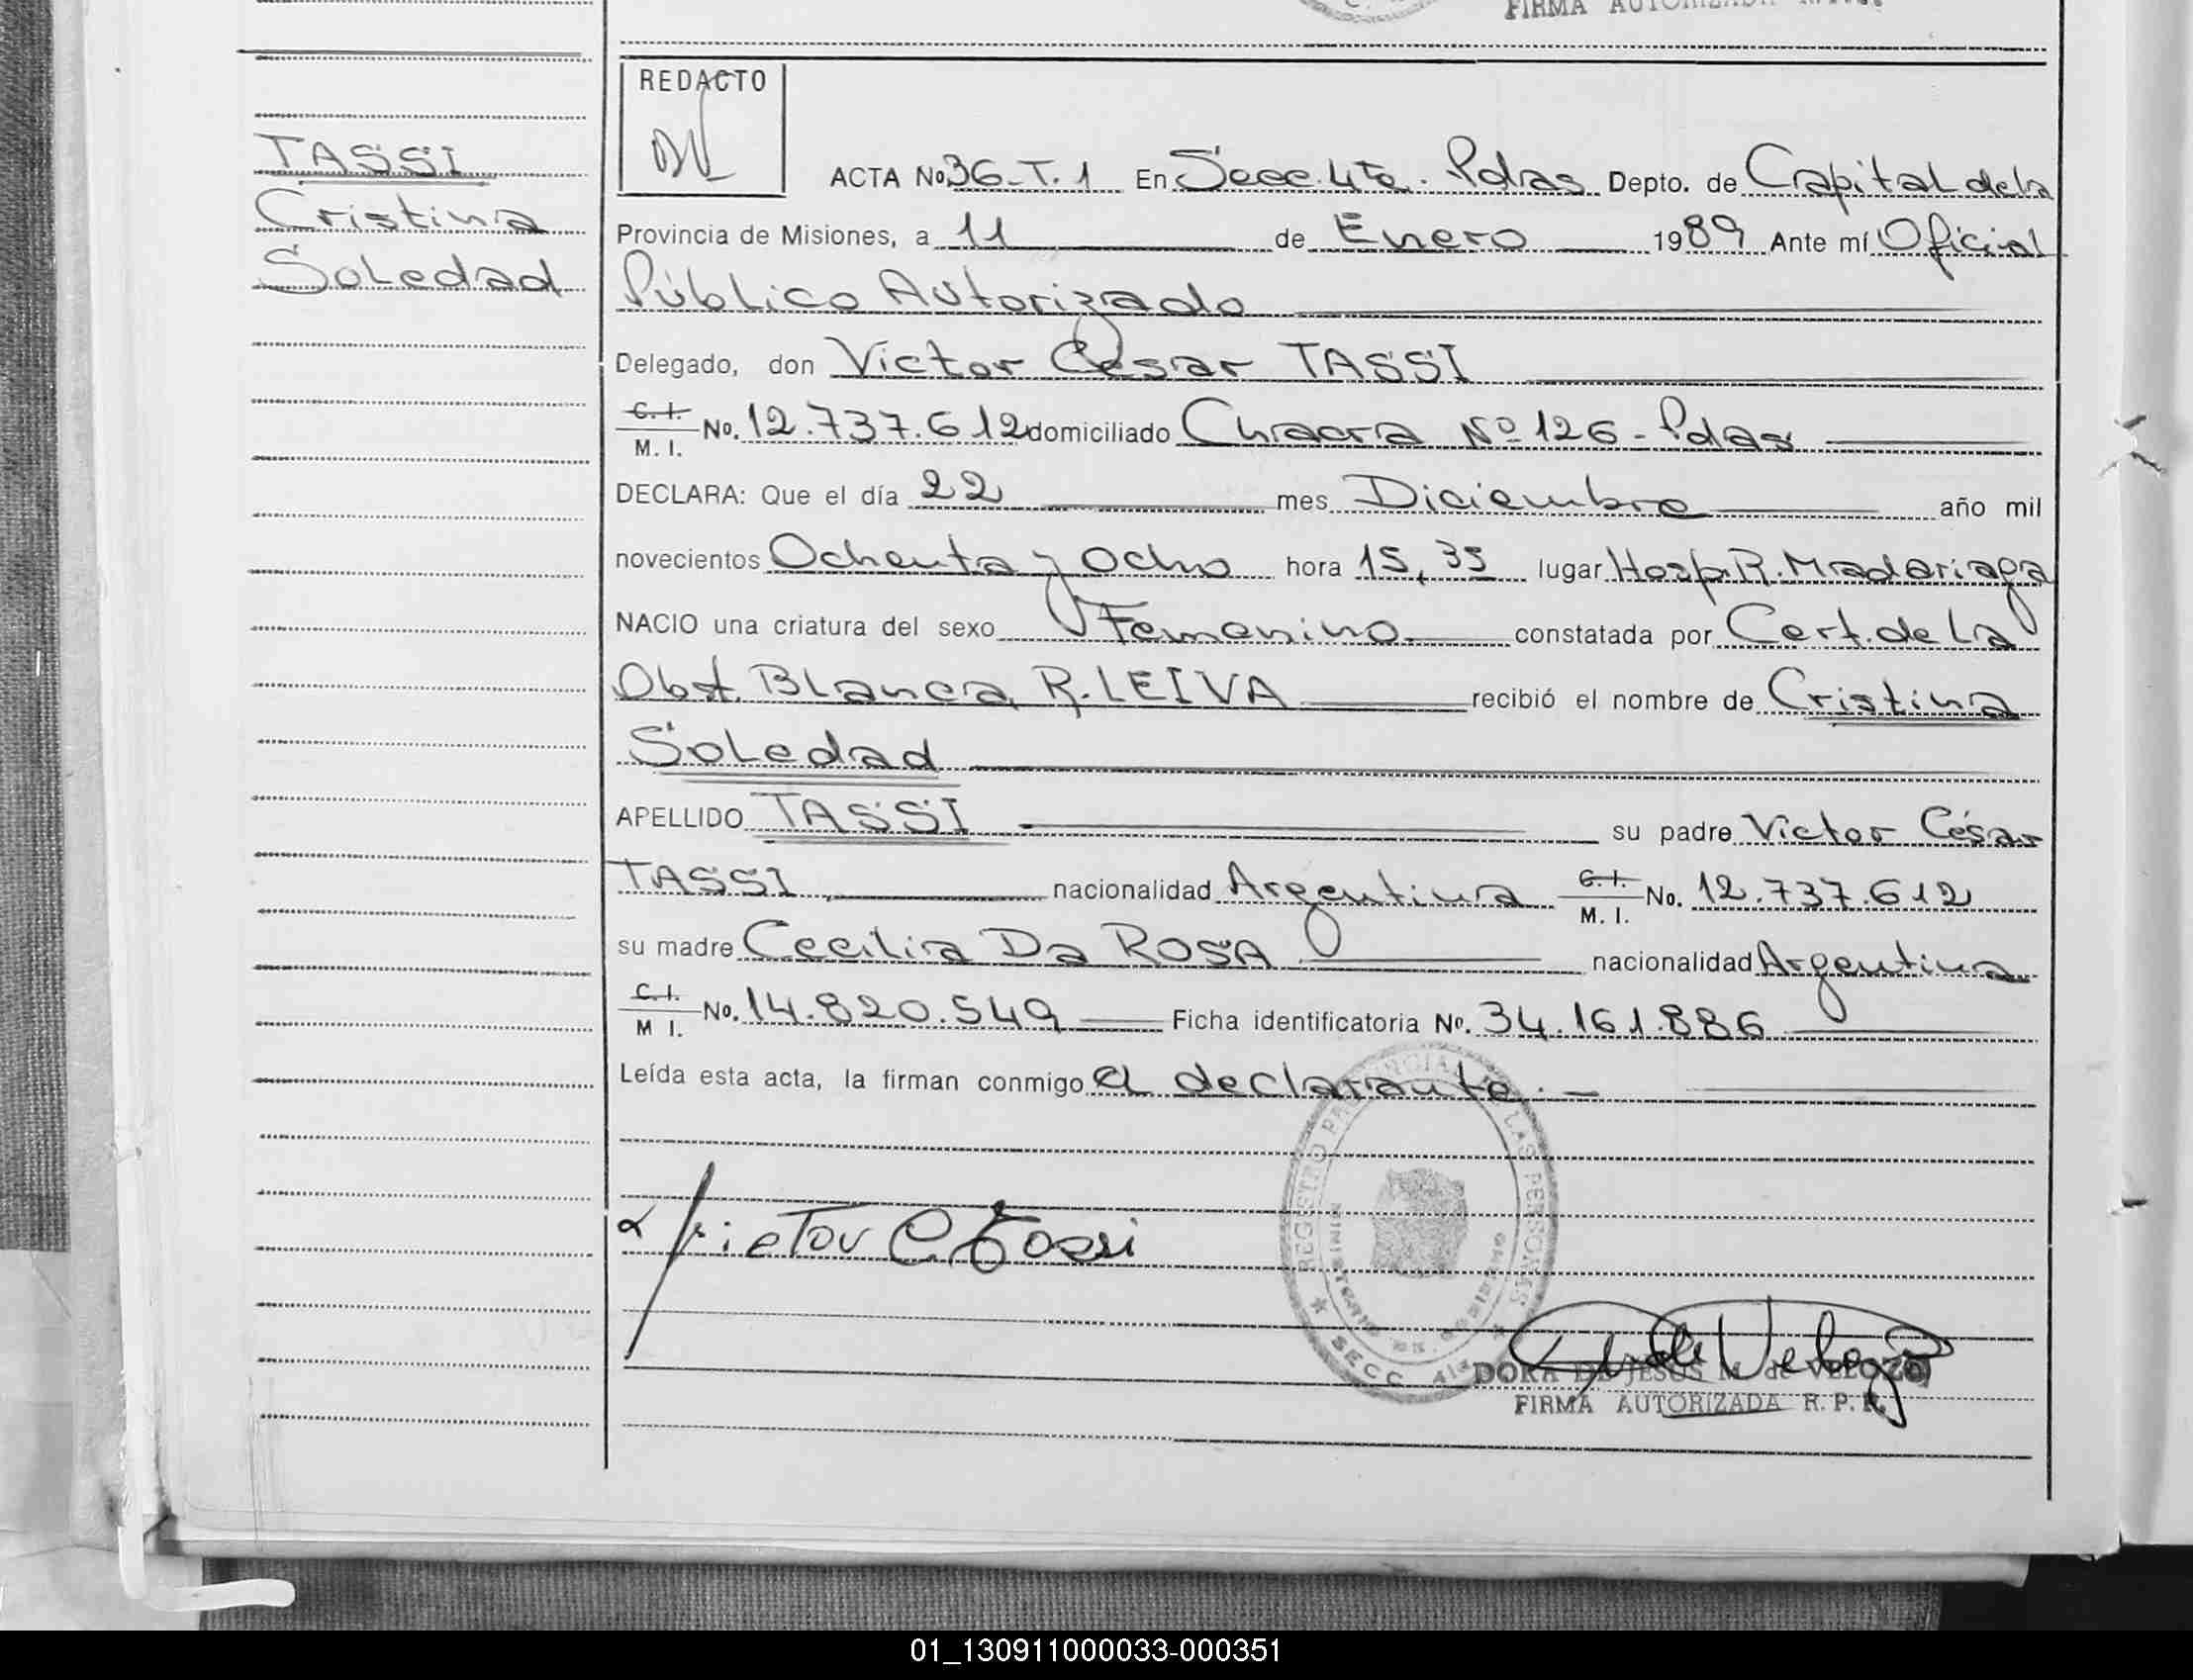 FIRMA AUTORIZADA
REDACTO
TASSI
Cristina
Soledad
ACTA No 36-T.1 En Secc. 4ta. Pdas Depto. de Capital de la
Provincia de Misiones, a 11 de Enero 1989 Ante mí Oficial
Público Autorizado
Delegado, don Victor César TASSI
C. I. M. I. No. 12.737.612 domiciliado Chacra Nº 126 - Pdas
DECLARA: Que el día 22 mes Diciembre año mil
novecientos Ochenta y Ocho hora 15,35 lugar Hosp. R. Madariaga
NACIO una criatura del sexo Femenino constatada por Cert. de La
Obst. Blanca R. LEIVA recibió el nombre de Cristina
Soledad
APELLIDO TASSI su padre Victor César
TASSI nacionalidad Argentina C. I. M. I. No. 12.737.612
su madre Cecilia Da ROSA nacionalidad Argentina
C. I. M I. No. 14.820.549 Ficha identificatoria No. 34.161.886
Leída esta acta, la firman conmigo el declarante.-
Victor C. Tassi
REGISTRO PROVINCIAL DE LAS PERSONAS
MINISTERIO DE GOBIERNO
SECC 4ta
DORA DE JESUS M. de VELOZO
FIRMA AUTORIZADA R. P. P.
01_130911000033-000351